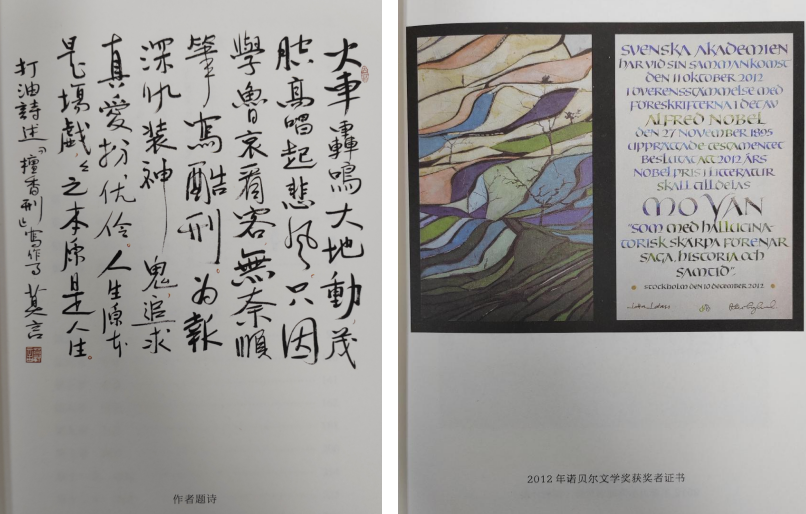 火車轟鳴大地動茂
腔高唱起悲風只因
學魯哀看客無奈順
筆寫酷刑。为報
深仇装神鬼追求
真愛扮优伶。人生原本
是場戲々之本原是人生。
打油詩述『檀香刑』寫作事 莫言
作者题诗
SVENSKA AKADEMIEN
HAR VID SIN SAMMANKOMST
DEN 11 OKTOBER 2012
I ÖVERENSSTÄMMELSE MED
FÖRESKRIFTERNA I DET AV
ALFRED NOBEL
DEN 27 NOVEMBER 1895
UPPRÄTTADE TESTAMENTET
BESLUTAT ATT 2012 ÅRS
NOBELPRIS I LITTERATUR
SKALL TILLDELAS
MO YAN
"SOM MED HALLUCINA-
TORISK SKÄRPA FÖRENAR
SAGA, HISTORIA OCH
SAMTID".
STOCKHOLM DEN 10 DECEMBER 2012
2012 年诺贝尔文学奖获奖者证书